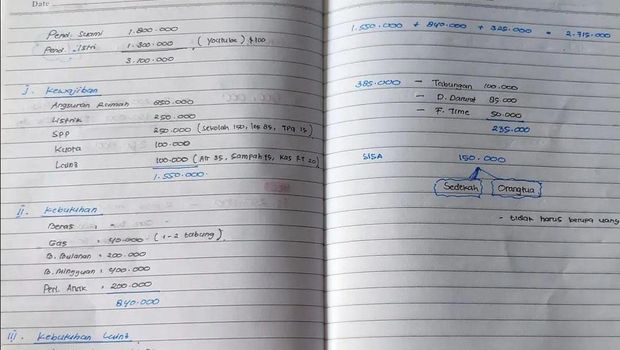 Date
Pend. Suami 1.800.000
Pend. Istri 1.300.000 (Youtube) $100
3.100.000
I. Kewajiban
Angsuran Rumah 850.000
Listrik 250.000
SPP 250.000 (Sekolah 150, les 85, TPQ 15)
Kuota 100.000
Lain2 100.000 (Air 35, Sampah 45, Kas RT 20)
1.550.000
II. Kebutuhan
Beras : -
Gas : 40.000 (1-2 tabung)
B. Bulanan : 200.000
B. Mingguan : 400.000
Perl. Anak : 200.000
840.000
III. Kebutuhan Lain2
1.550.000 + 840.000 + 325.000 = 2.715.000
385.000 - Tabungan 100.000
- D. Darurat 85.000
- F. Time 50.000
235.000
SISA 150.000
Sedekah Orangtua
- tidak harus berupa uang